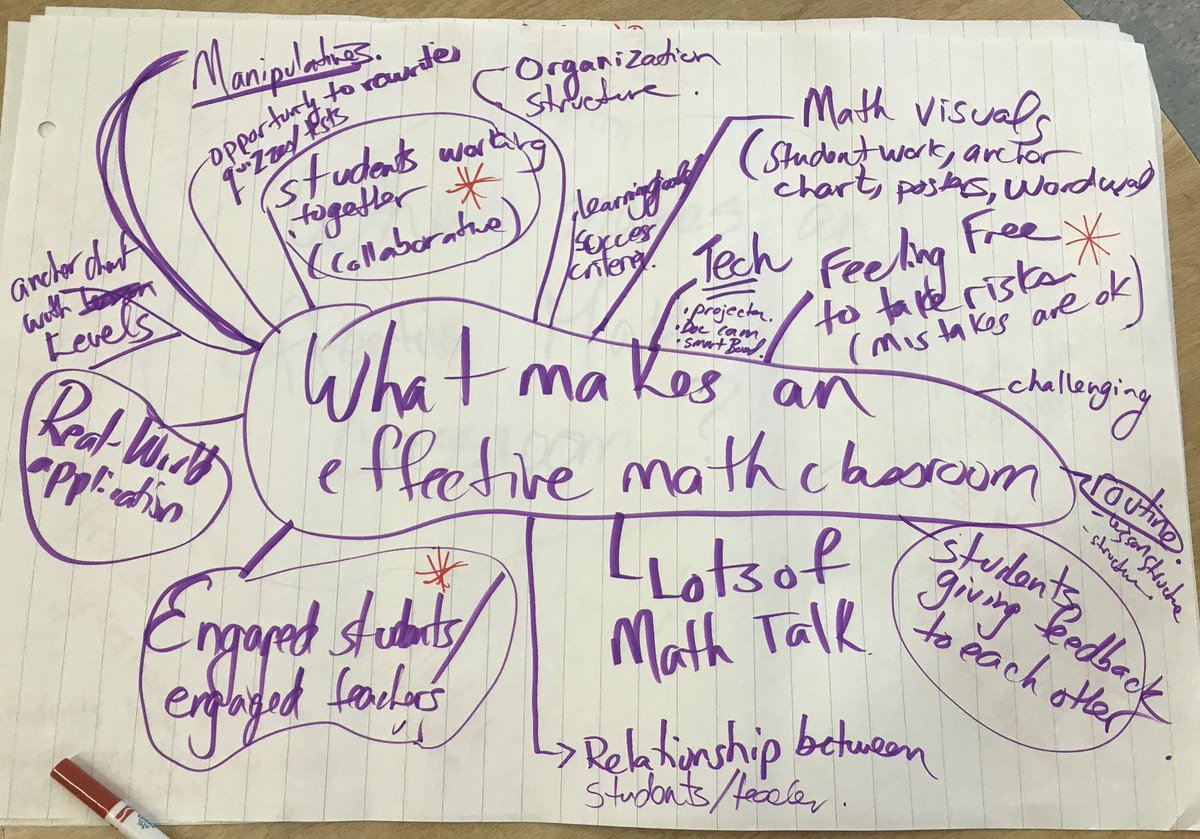 Manipulatives.
opportunity to rewrite
quizzes/tests
Organization
structure.
students working
together
(collaborative)
learning goals
success
criteria.
Math visuals
(student work, anchor
chart, posters, wordwall)
Tech
• projector.
• Doc cam
• smartBoard.
Feeling Free
to take risks
(mistakes are ok)
anchor chart
with
Levels
What makes an
effective math classroom
challenging
routine.
- lesson structure
- structure.
Real-World
application
Engaged students/
engaged teachers
Lots of
Math Talk.
students
giving feedback
to each other
Relationship between
students/teacher.